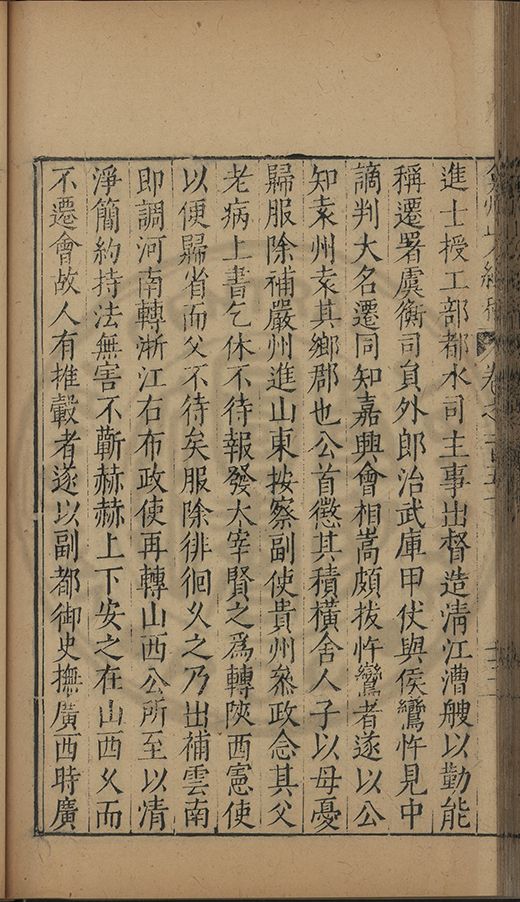 弇州山人續稿 卷之一百五十
進士授工部都水司主事出督造淸江漕艘以勤能
稱遷署虞衡司員外郎治武庫甲仗與侯鸞忤見中
謫判大名遷同知嘉興會相嵩頗拔忤鸞者遂以公
知袁州袁其鄉郡也公首懲其積橫舍人子以母憂
歸服除補嚴州進山東按察副使貴州叅政念其父
老病上書乞休不待報發大宰賢之爲轉陝西憲使
以便歸省而父不待矣服除徘徊久之乃出補雲南
即調河南轉浙江右布政使再轉山西公所至以情
淨簡約持法無害不蘄赫赫上下安之在山西久而
不遷會故人有推轂者遂以副都御史撫廣西時廣